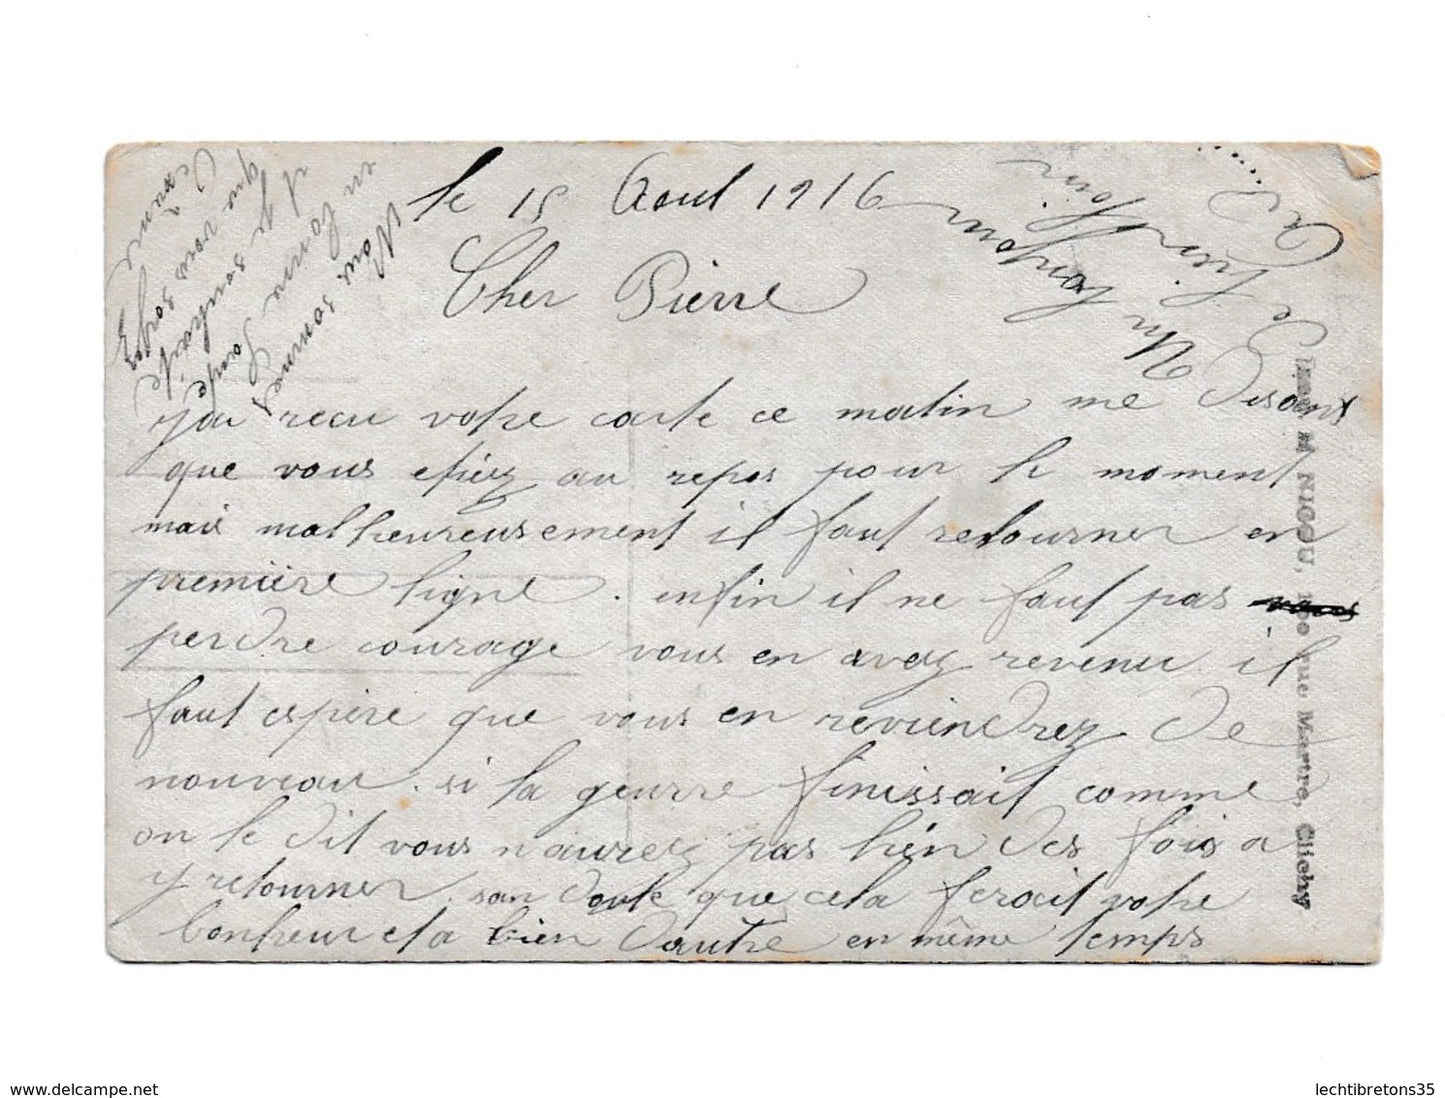 le 15 Aout 1916
Cher Pierre
j'ai recu votre carte ce matin me disant
que vous etiez au repos pour le moment
mais malheureusement il faut retourner en
première ligne. enfin il ne faut pas
perdre courage vous en avez revenu il
faut espère que vous en reviendrez de
nouveau. si la guerre finissait comme
on le dit vous n'aurez pas bien des fois a
y retourner. san doute que cela ferait votre
bonheur et a bien d'autre en même temps
Nous sommes
en bonne Santé
et je souhaite
que vous soyez
de même
Un
IMP. M NICOU, 100 rue Martre, Clichy
www.delcampe.net
lechtibretons35